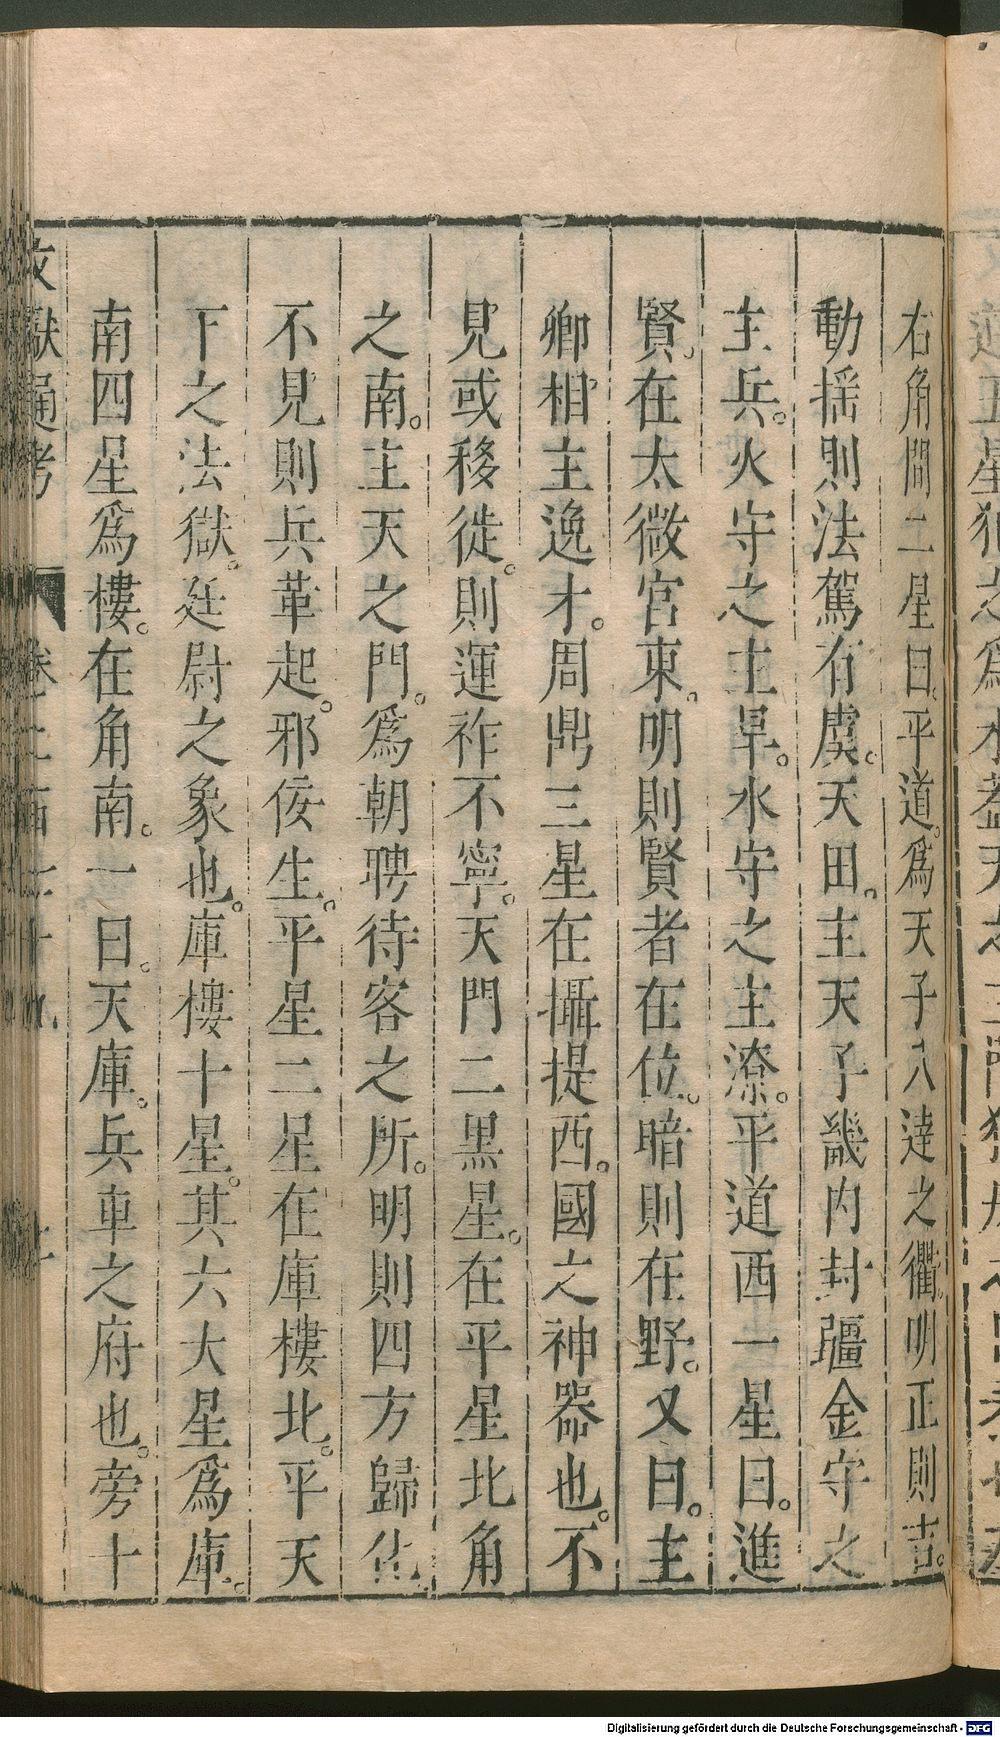 右角間二星曰。平道。爲天子八逹之衢。明正則吉。
動揺則法駕有虞。天田。主天子畿内封疆金守之
主兵。火守之主旱。水守之主潦。平道西一星曰。進
賢。在太微宮東。明則賢者在位。暗則在野。又曰。主
卿相主逸才。周鼎三星在攝提西。國之神器也。不
見或移徙。則運祚不寧。天門二黑星。在平星北角
之南。主天之門。爲朝聘待客之所。明則四方歸化。
不見則兵革起。邪佞生。平星二星在庫樓北。平天
下之法獄。廷尉之象也。庫樓十星。其六大星爲庫。
南四星爲樓。在角南。一曰。天庫。兵車之府也。旁十
文獻通考
Digitalisierung gefördert durch die Deutsche Forschungsgemeinschaft - DFG